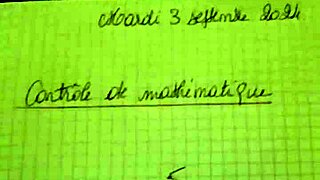 Mardi 3 septembre 2024
Contrôle de mathématique